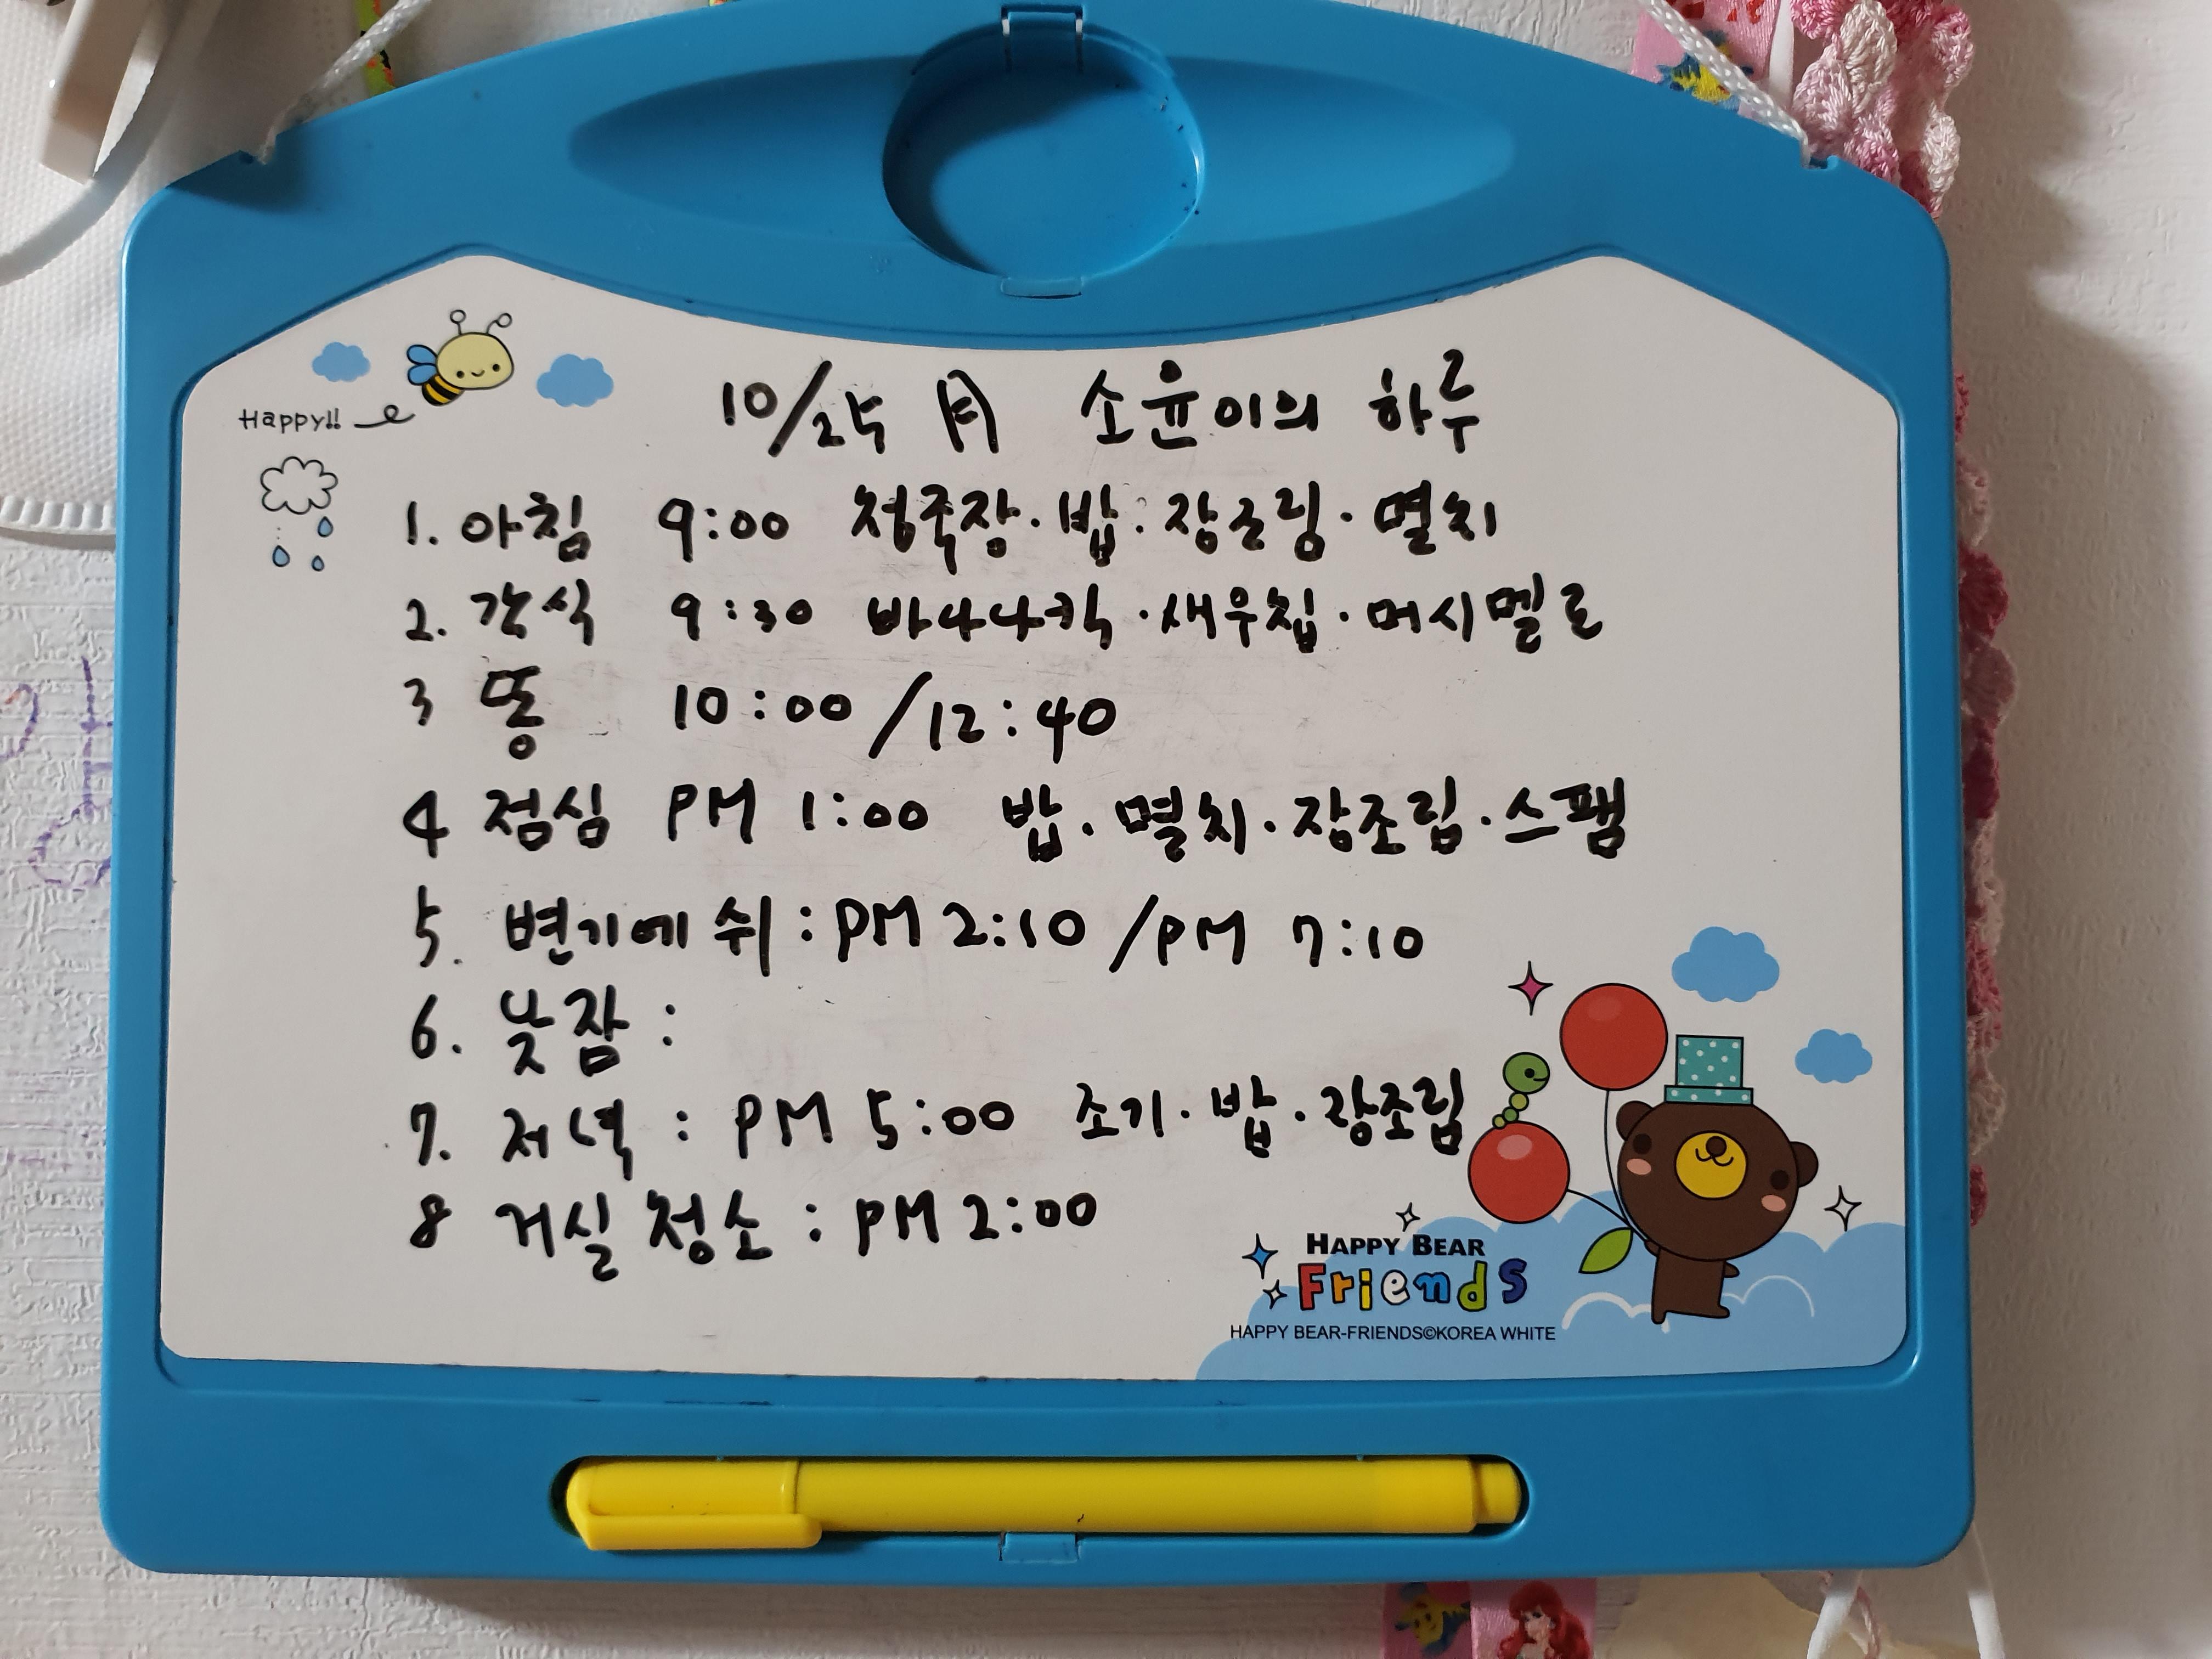 Happy!!
10/25 月 소윤이의 하루
1. 아침 9:00 청국장·밥·장조림·멸치
2. 간식 9:30 바나나킥·새우칩·머시멜로
3 똥 10:00 / 12:40
4 점심 PM 1:00 밥·멸치·장조림·스팸
5. 변기에 쉬 : PM 2:10 / PM 7:10
6. 낮잠 :
7. 저녁 : PM 5:00 조기·밥·장조림
8 거실 청소 : PM 2:00
HAPPY BEAR
Friends
HAPPY BEAR-FRIENDS©KOREA WHITE